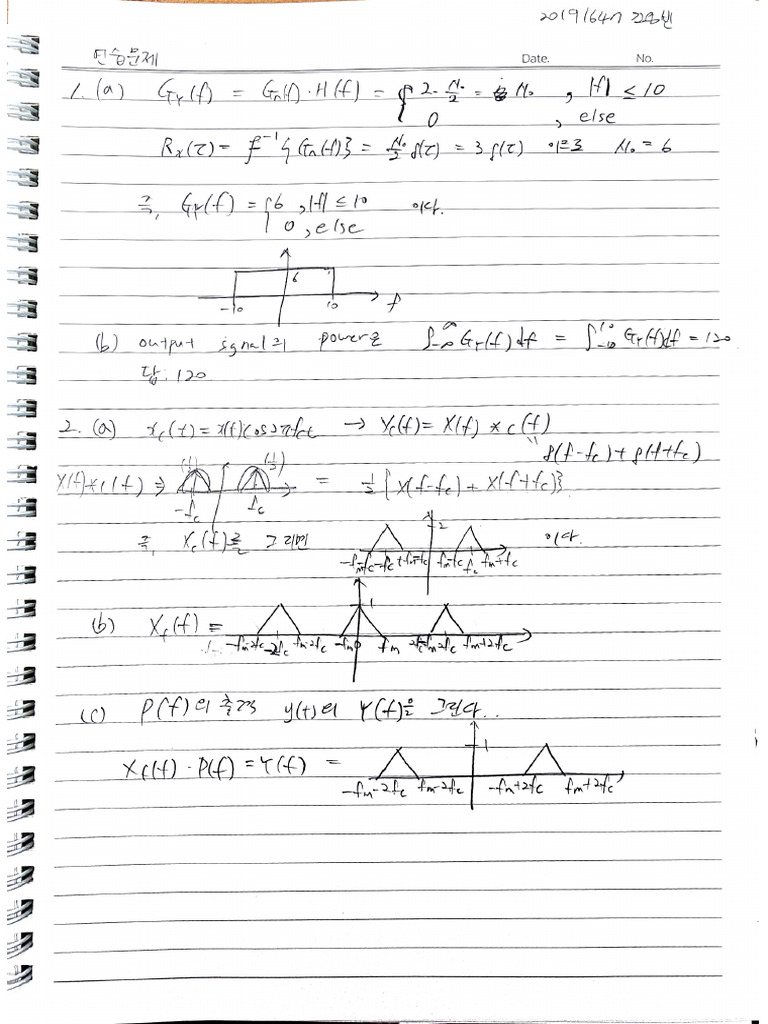 연습문제
Date. No.
1. (a) Gy(f) = Gn(f)·H(f) = { 2·N₀/2 = N₀ , |f| ≤ 10
0 , else
Rx(τ) = F⁻¹{Gn(f)} = N₀/2 δ(τ) = 3δ(τ) 이므로 N₀ = 6
즉, Gy(f) = { 6 , |f| ≤ 10 이다.
0 , else
6
-10 10 f
(b) output signal의 power은 ∫-∞^∞ Gy(f)df = ∫-10^10 Gy(f)df = 120
답: 120
2. (a) xc(t) = x(t)cos2πfct → Xc(f) = X(f) * c(f)
" δ(f-fc)+δ(f+fc)
X(f)*c(f) ⇒ (1/2) (1/2) = 1/2 {X(f-fc) + X(f+fc)}
-fc fc
즉, Xc(f)를 그리면 2 이다.
-fm-fc -fc +fm-fc fm-fc fc fm+fc
(b) Xf(f) = 1
-fm-2fc -2fc fm-2fc -fm 0 fm fm+2fc
(c) P(f)의 출력 y(t)의 Y(f)을 그린다..
Xf(f)·P(f) = Y(f) = 1
-fm-2fc fm-2fc -fm+2fc fm+2fc